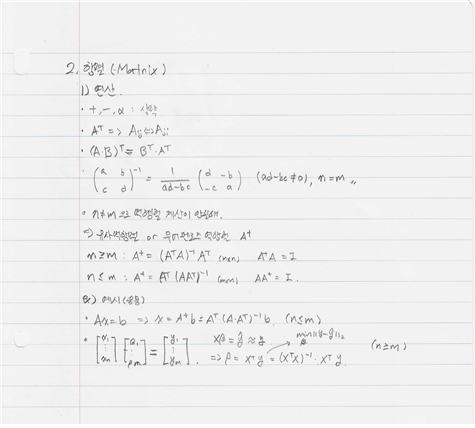 2. 행렬 (Matrix)
1) 연산.
· +, -, α : 생략
· Aᵀ => Aij <=> Aji
· (A·B)ᵀ = Bᵀ·Aᵀ
· (a b; c d)⁻¹ = 1/(ad-bc) (d -b; -c a) (ad-bc≠0), n=m
o n≠m 으로 역행렬 계산이 안될때.
=> 유사역행렬 or 무어펜로즈 역행렬 A⁺
n≥m : A⁺ = (AᵀA)⁻¹Aᵀ (m×n) A⁺A = I
n≤m : A⁺ = Aᵀ(AAᵀ)⁻¹ (m×n) AA⁺ = I.
예시(응용)
· Ax=b => x = A⁺b = Aᵀ(A·Aᵀ)⁻¹b. (n≤m)
· [x₁ ⋮ xₙ] [β₁ ⋮ βm] = [y₁ ⋮ ym]. Xβ = ŷ ≈ y min‖y-ŷ‖₂ (n≥m)
=> β = X⁺y = (XᵀX)⁻¹·Xᵀy.